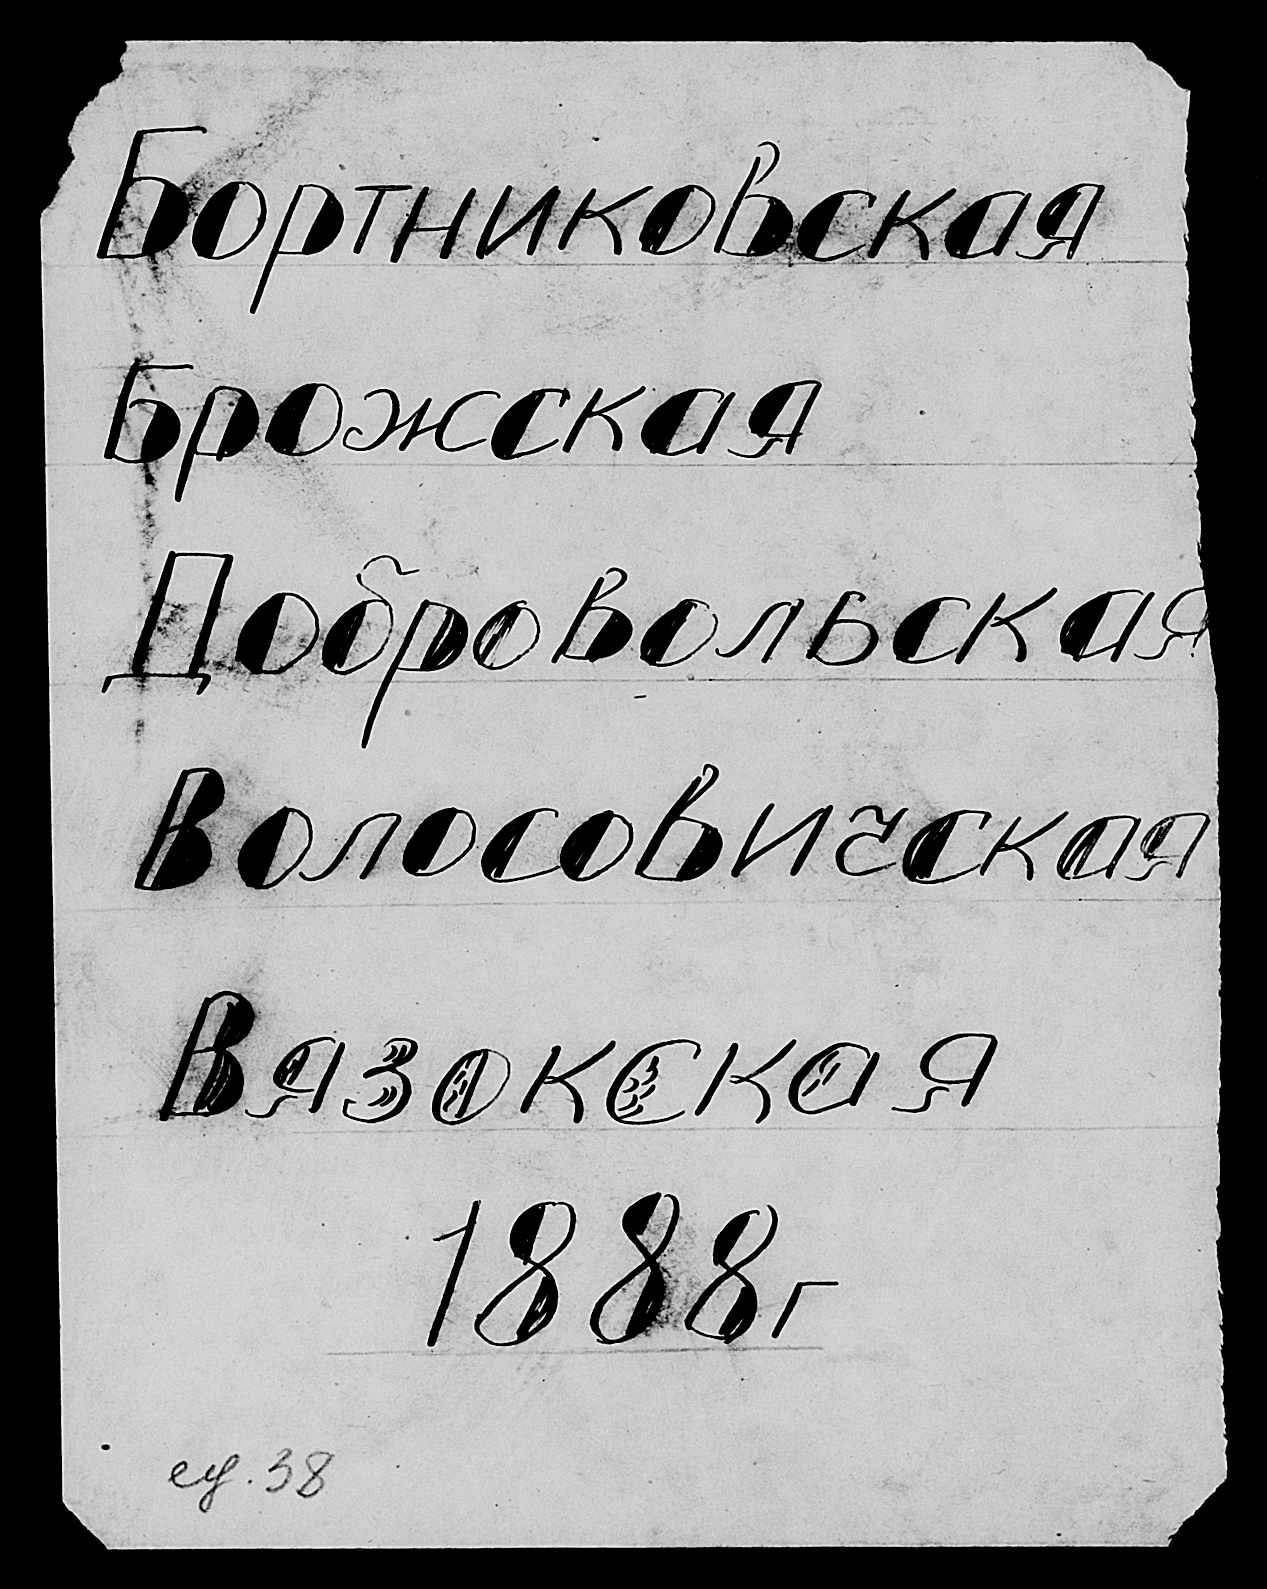 Бортниковская
Брожская
Добровольская
Волосовичская
Вязокская
1888г
еу. 38